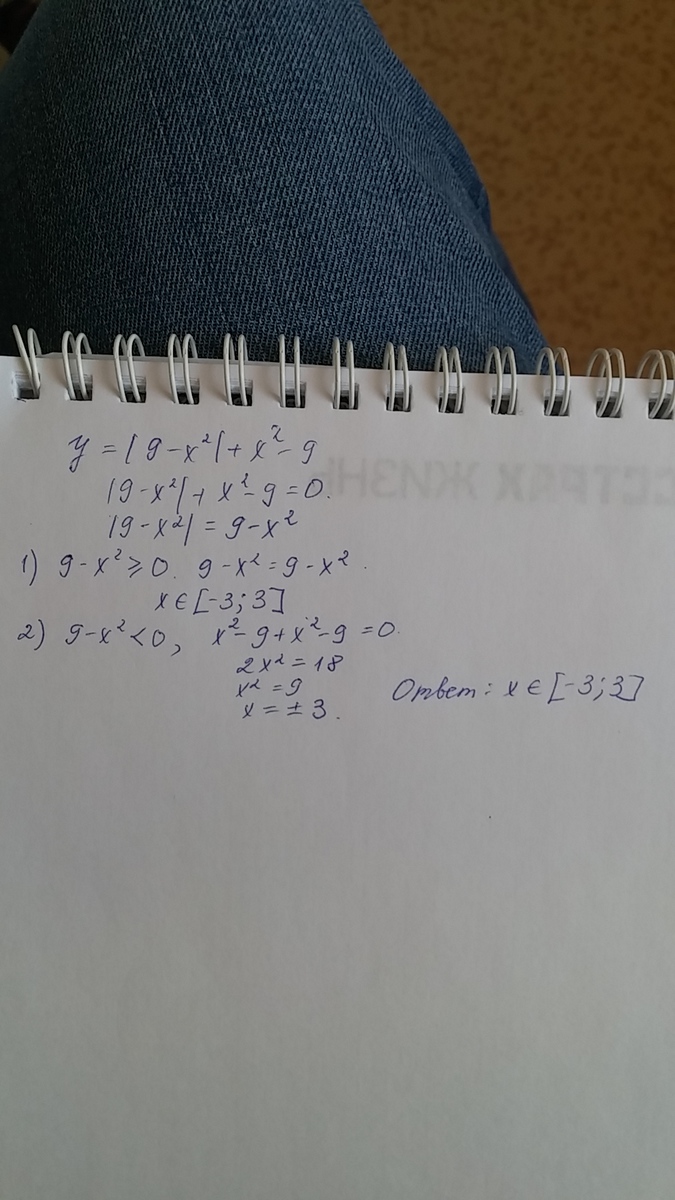 y = |9-x²| + x² - 9
|9-x²| + x² - 9 = 0.
|9-x²| = 9-x²
1) 9-x² ⩾ 0. 9-x² = 9-x².
x ∈ [-3; 3]
2) 9-x² < 0, x² - 9 + x² - 9 = 0.
2x² = 18
x² = 9
x = ± 3.
Ответ: x ∈ [-3; 3]
ССТРАХ ЖИЗНЬ